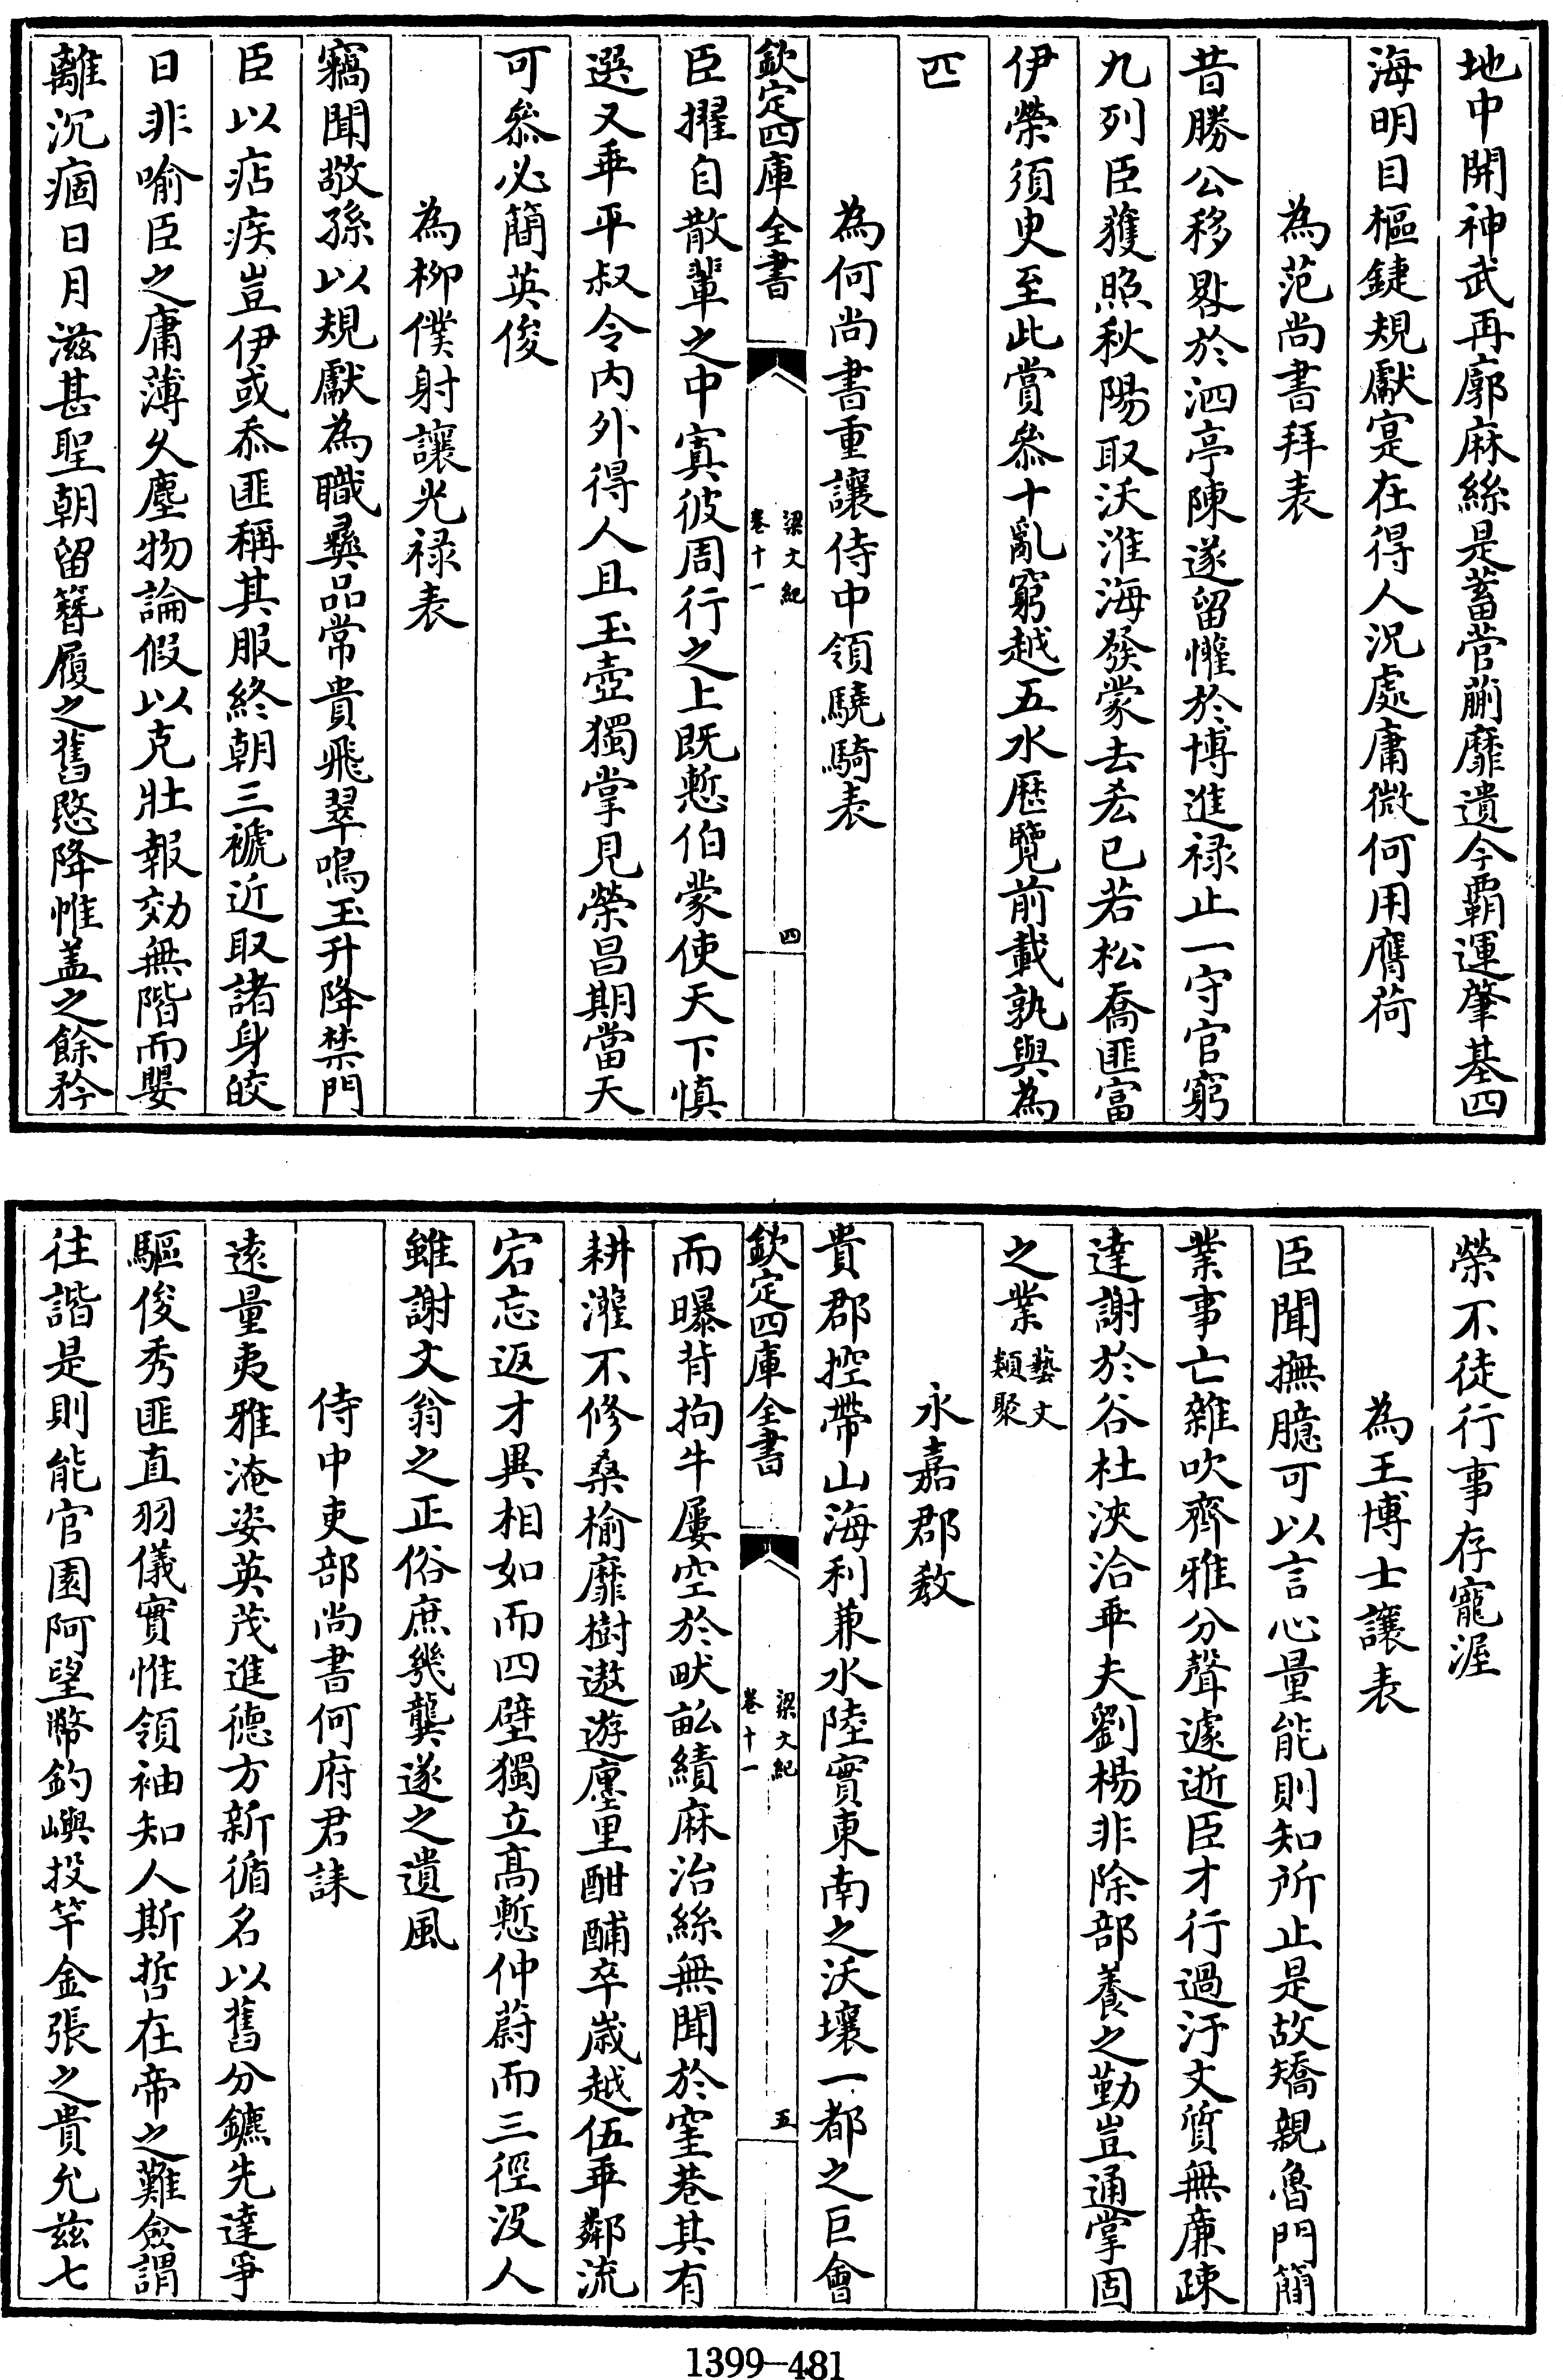 地中開神武再廓麻絲是蓄菅蒯靡遺今覇運肇基四
海明目樞鍵規獻寔在得人況處庸微何用膺荷
為范尚書拜表
昔勝公移畧於泗亭陳遂留懽於博進祿止一守官窮
九列臣獲照秋陽取沃淮海發蒙去炁已若松喬匪富
伊榮須臾至此賞叅十亂窮越五水歷覽前載孰與為
匹
為何尚書重讓侍中領驍騎表
欽定四庫全書
梁文紀
卷十一
四
臣擢自散輩之中寘彼周行之上既慙伯蒙使天下慎
選又乖平叔令内外得人且玉壺獨掌見榮昌期當天
可叅必簡英俊
為柳僕射讓光禄表
竊聞敬孫以規獻為職彞品常貴飛翠鳴玉升降禁門
臣以痁疾豈伊或忝匪稱其服終朝三褫近取諸身皎
日非喻臣之庸薄久塵物論假以克壯報効無階而嬰
離沉痼日月滋甚聖朝留簪履之舊愍降惟盖之餘矜
榮不徒行事存寵渥
為王博士讓表
臣聞撫臆可以言心量能則知所止是故矯親魯門簡
業事亡雜吹齊雅分聲遽逝臣才行過汙文質無廉疎
達謝於谷杜浹洽乖夫劉楊非除部養之勤豈通掌固
之業藝文類聚
永嘉郡教
貴郡控帶山海利兼水陸實東南之沃壤一都之巨會
欽定四庫全書
梁文紀
卷十一
五
而曝背拘牛屢空於畎畝績麻治絲無聞於窐巷其有
耕灌不修桑榆靡樹遨遊廛里酣酺卒歲越伍乖鄰流
宕忘返才異相如而四壁獨立高慙仲蔚而三徑没人
雖謝文翁之正俗庶幾龔遂之遺風
侍中吏部尚書何府君誄
遠量夷雅淹姿英茂進德方新循名以舊分鑣先達爭
驅俊秀匪直羽儀實惟領袖知人斯哲在帝之難僉謂
往諧是則能官園阿望幣釣嶼投竿金張之貴允兹七
1399—481